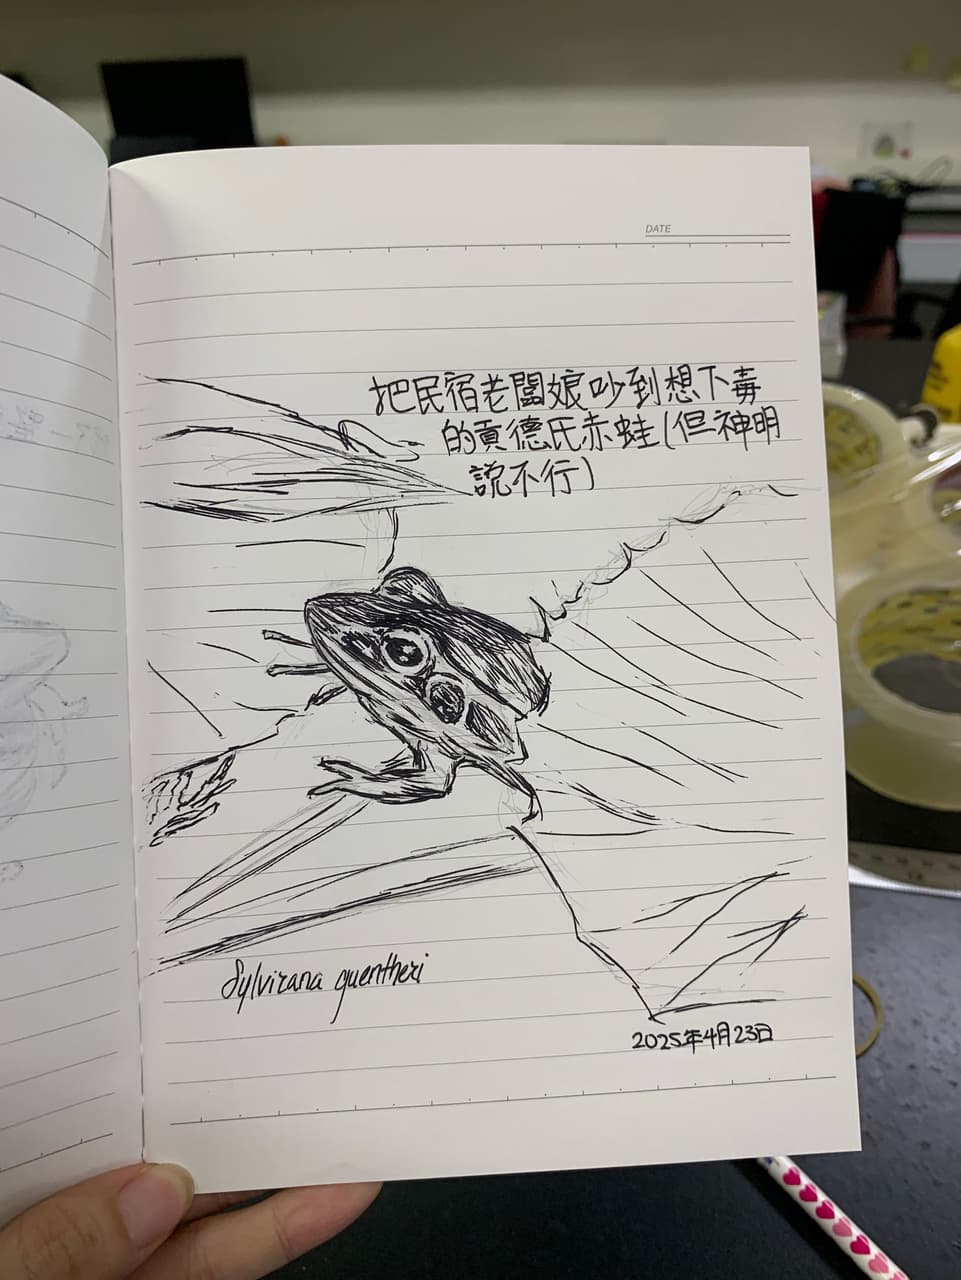 DATE
把民宿老闆娘吵到想下毒
的貢德氏赤蛙(但神明
說不行)
Sylvirana guentheri
2025年4月23日